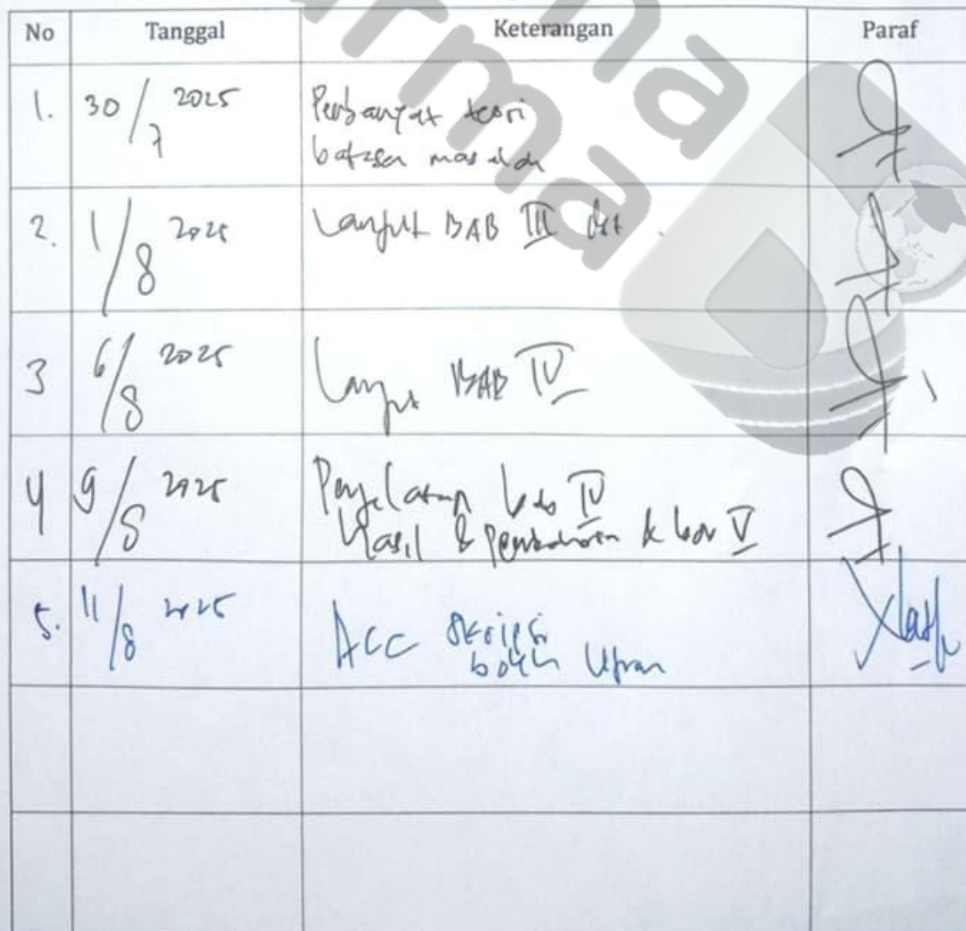 No Tanggal Keterangan Paraf
1. 30/7 2025 Perbanyak teori
batasan masalah
2. 1/8 2025 Lanjut BAB III dst.
3 6/8 2025 Lanjut BAB IV
4 9/8 2025 Penjelasan bab IV
Hasil & pembahasan & bab V
5. 11/8 2025 ACC skripsi
boleh Ujian